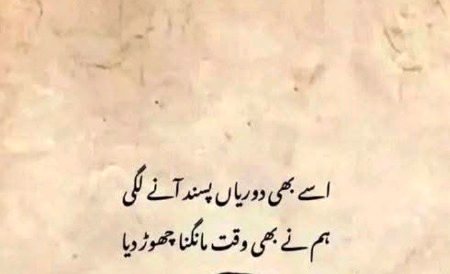 اسے بھی دوریاں پسند آنے لگی
ہم نے بھی وقت مانگنا چھوڑ دیا